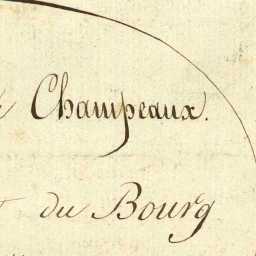 Champeaux.
du Bourg